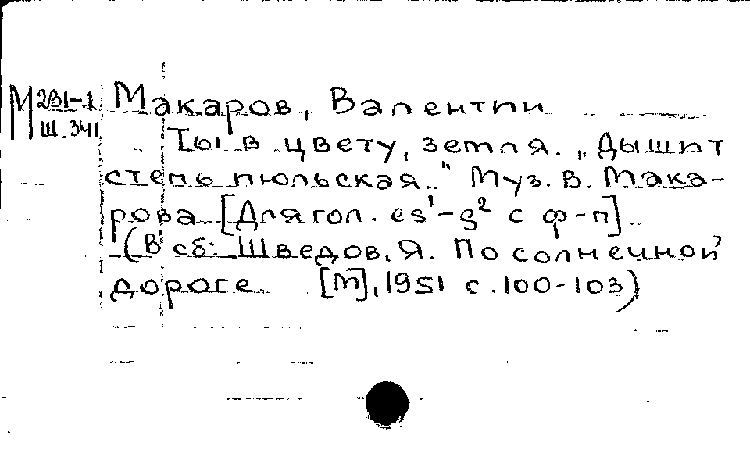 М 2В1-1
Ш.341
Макаров, Валентин
Ты в цвету, земля. „Дышит
степь июльская.." Муз. В. Мака-
рова [Для гол. es¹-g² с ф-п]
(В сб: Шведов, Я. По солнечной
дороге. [М], 1951 с. 100-103)